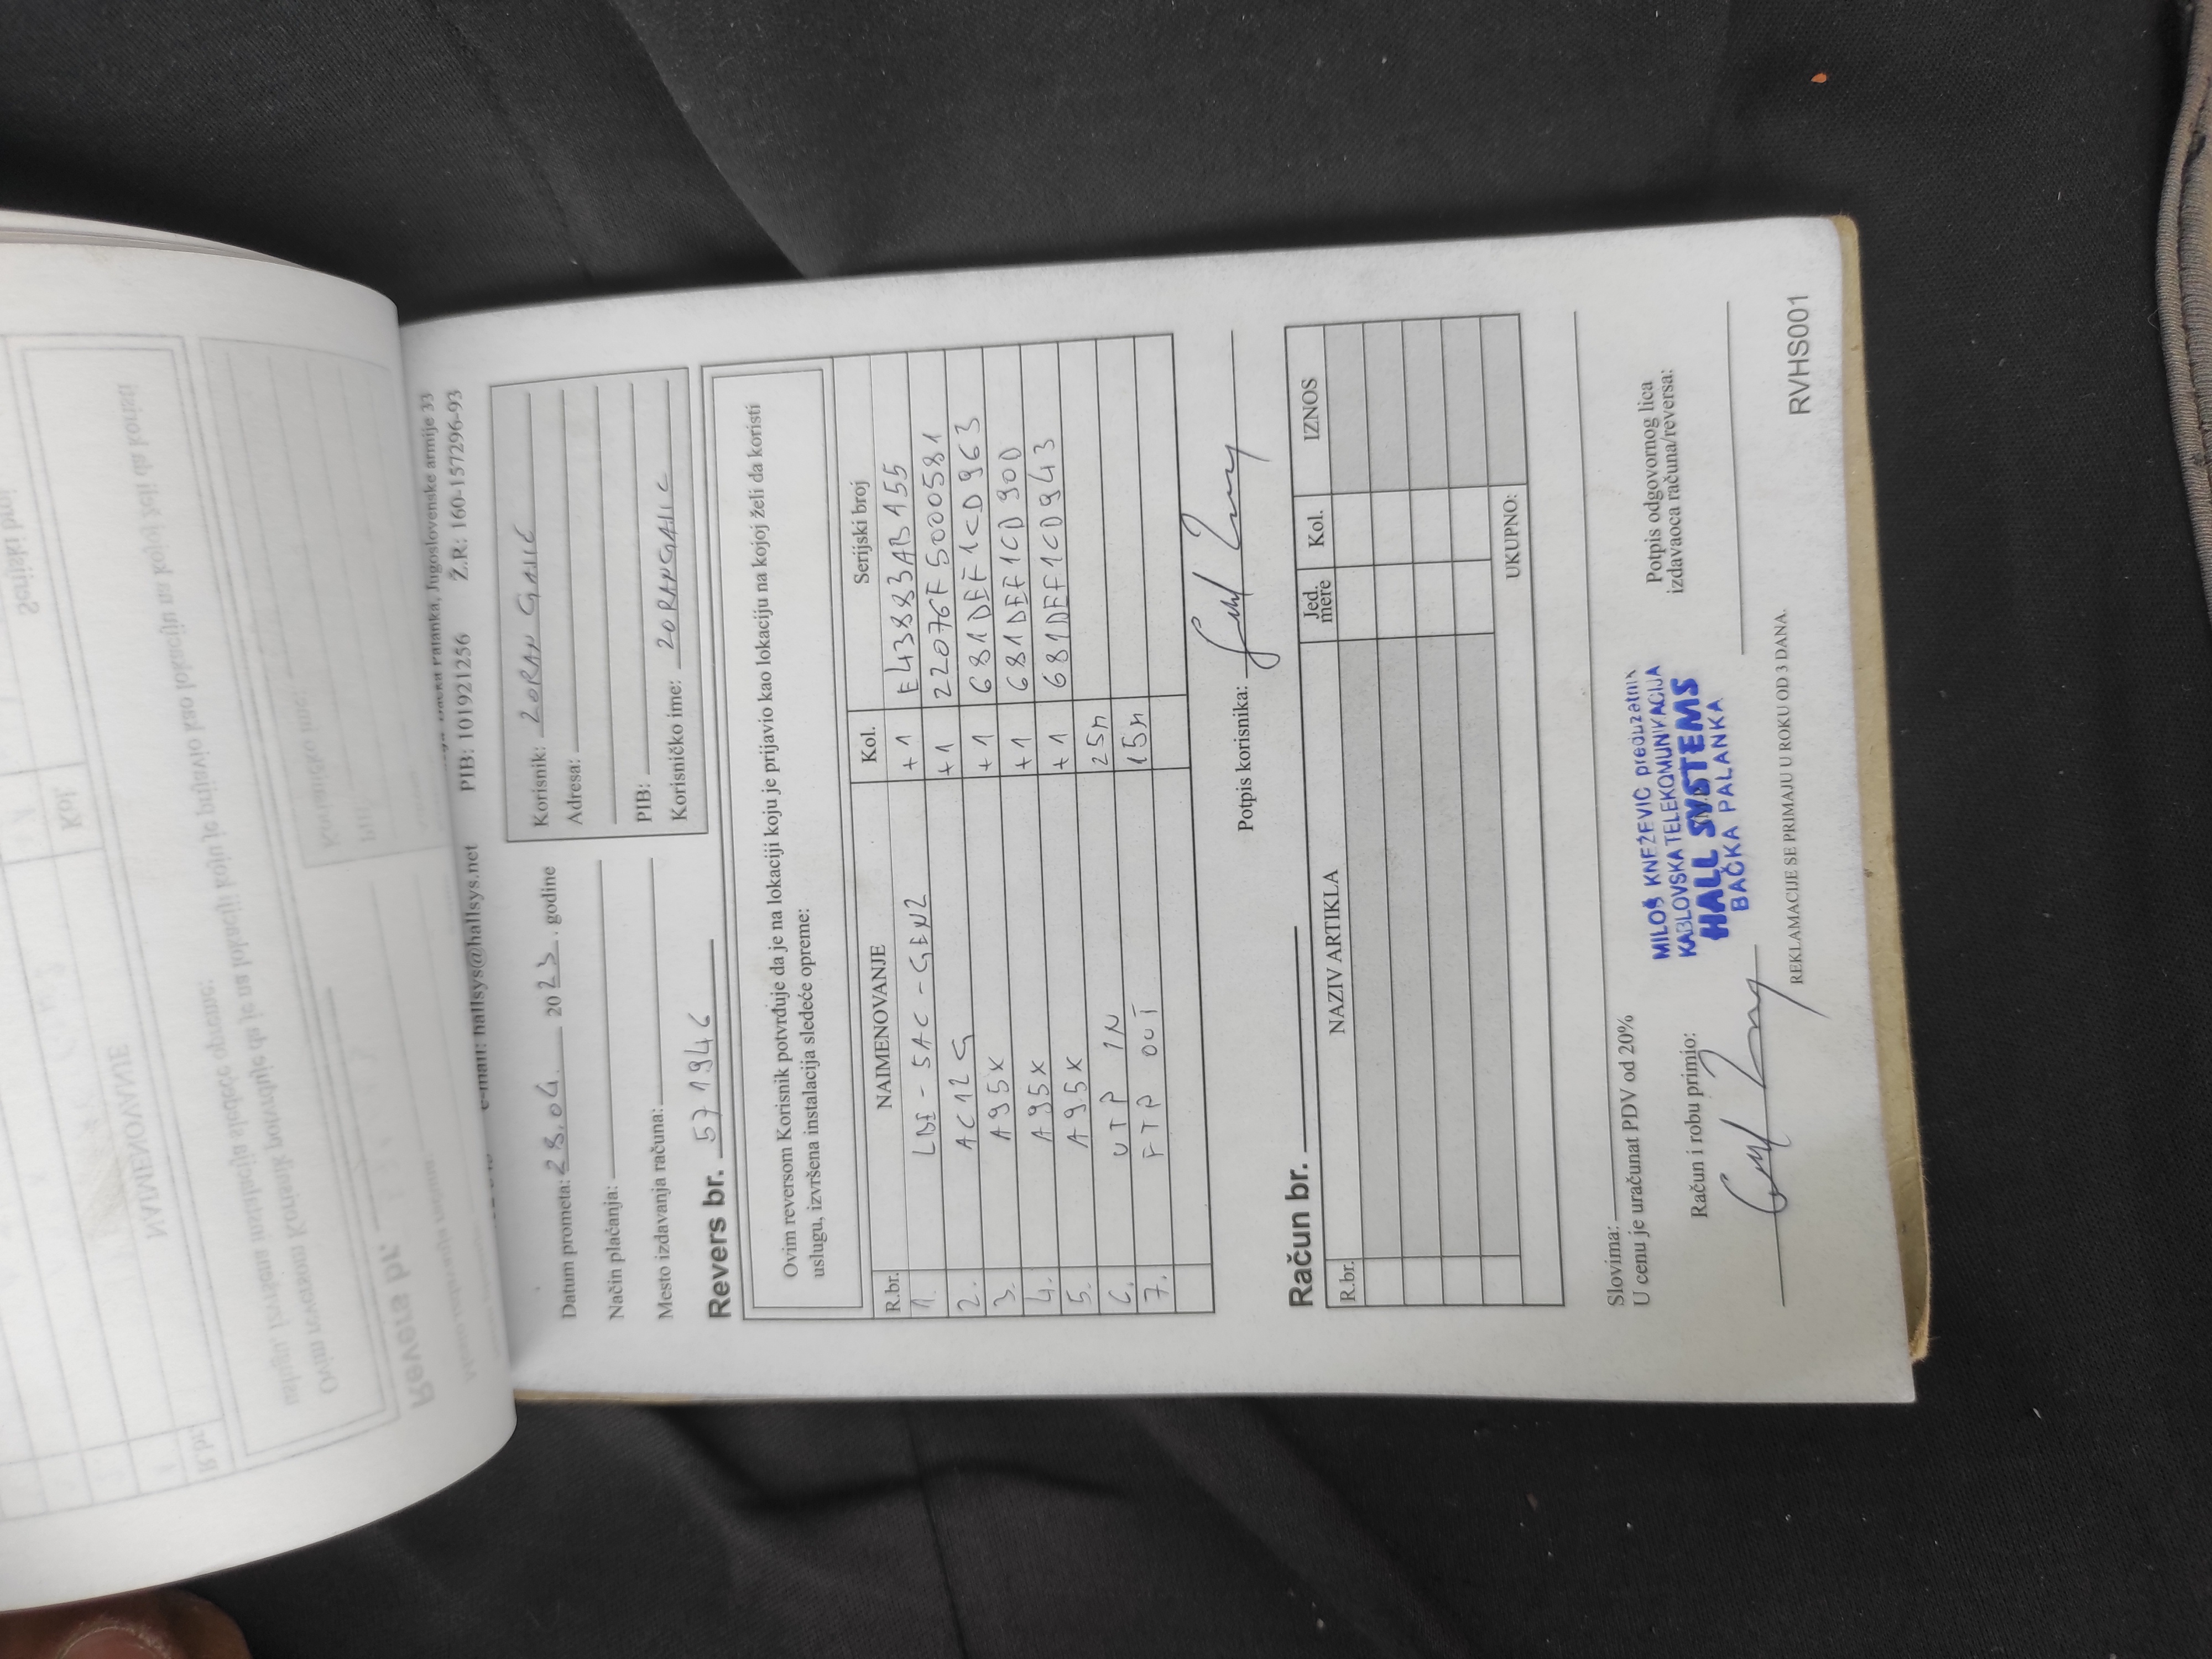 Bačka Palanka, Jugoslovenske armije 33
e-mail: hallsys@hallsys.net PIB: 101921256 Ž.R: 160-157296-93
Datum prometa: 28.04. 2023. godine
Način plaćanja:
Mesto izdavanja računa:
Korisnik: ZORAN GAJIĆ
Adresa:
PIB:
Korisničko ime: ZORANGAJIC
Revers br. 571946
Ovim reversom Korisnik potvrđuje da je na lokaciji koju je prijavio kao lokaciju na kojoj želi da koristi
uslugu, izvršena instalacija sledeće opreme:
R.br. NAIMENOVANJE Kol. Serijski broj
1. LBE-5AC-GEN2 +1 E43883ABA55
2. AC12G +1 22076F5000581
3. A95X +1 681DEF1CD963
4. A95X +1 681DEF1CD90D
5. A95X +1 681DEF1CD943
6. UTP IN 25m
7. FTP OUT 15m
Potpis korisnika:
Račun br.
R.br. NAZIV ARTIKLA Jed. mere Kol. IZNOS
UKUPNO:
Slovima:
U cenu je uračunat PDV od 20%
Račun i robu primio:
MILOŠ KNEŽEVIĆ preduzetnik
KABLOVSKA TELEKOMUNIKACIJA
HALL SYSTEMS
BAČKA PALANKA
Potpis odgovornog lica
izdavaoca računa/reversa:
REKLAMACIJE SE PRIMAJU U ROKU OD 3 DANA.
RVHS001